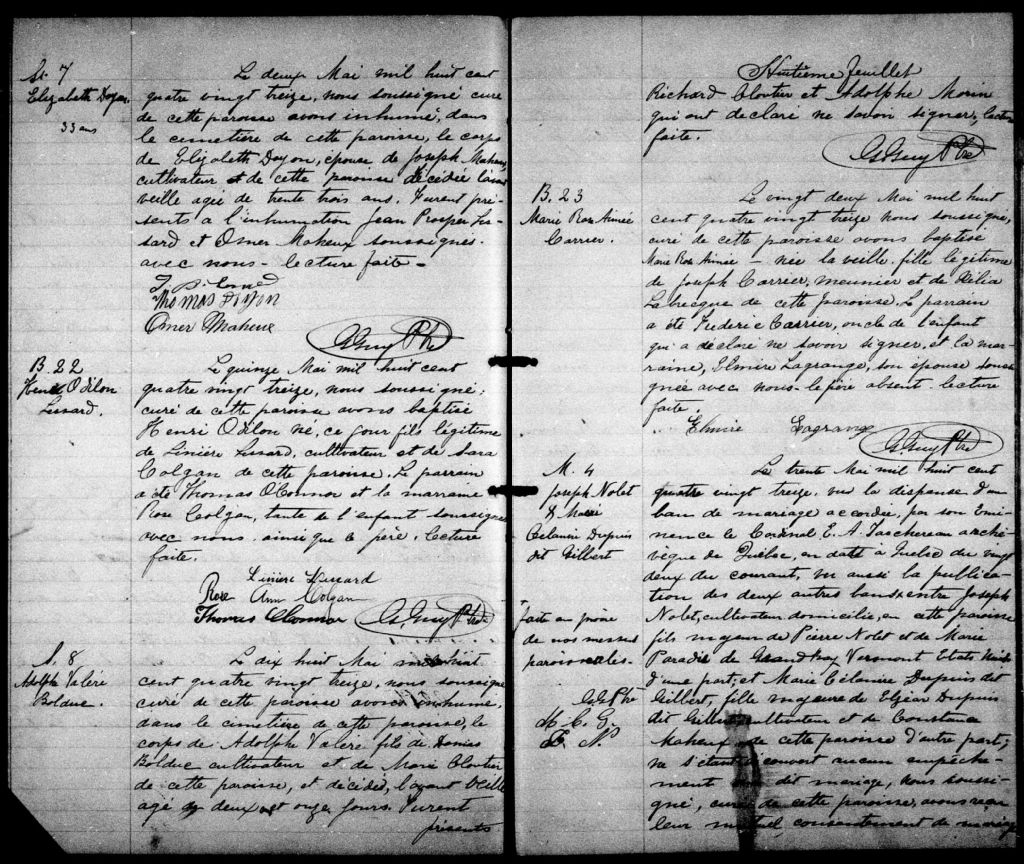 S. 7
Elizabeth Doyon
33 ans
Le deux Mai mil huit cent
quatre vingt treize, nous soussigné curé
de cette paroisse avons inhumé, dans
le cemetière de cette paroisse, le corps
de Elizabeth Doyon, épouse de Joseph Maheux
cultivateur et de cette paroisse décédée
veille agée de trente trois ans. Furent pré-
sents a l'inhumation Jean Prosper Les-
sard et Omer Maheux soussignés.
avec nous - lecture faite -
Thomas Doyon
Omer Maheux
B. 22
Henri Odilon
Lessard.
Le quinze Mai mil huit cent
quatre vingt treize, nous soussigné,
curé de cette paroisse avons baptisé
Henri Odilon né, ce jour fils légitime
de Linière Lessard, cultivateur et de Sara
Colgan de cette paroisse. Le parrain
a été Thomas O'Connor et la marraine
Rose Colgan, tante de l'enfant soussignés
avec nous ainsi que le père. lecture
faite.
Linière Lessard
Rose Ann Colgan
Thomas O'Connor
S. 8
Adolphe Valère
Bolduc.
Le dix huit Mai mil huit
cent quatre vingt treize, nous soussigné
curé de cette paroisse avons inhumé,
dans le cimetière de cette paroisse, le
corps de Adolphe Valère fils de Damins
Bolduc cultivateur et de Marie Cloutier
de cette paroisse, et décédé, l'avant veille
agé de deux et onze jours. Furent
présents
Huitième feuillet
Richard Cloutier et Adolphe Morin
qui ont déclaré ne savoir signer, lecture
faite.
B. 23
Marie Rose Aimée
Carrier.
Le vingt deux Mai mil huit
cent quatre vingt treize nous soussigné,
curé de cette paroisse avons baptisé
Marie Rose Aimée - née la veille, fille légitime
de Joseph Carrier, meunier et de Délia
Labrecque de cette paroisse. Le parrain
a été Frederic Carrier, oncle de l'enfant
qui a déclaré ne savoir signer, et la mar-
raine, Elmire Lagrange, son épouse sous-
signée avec nous. le père absent. lecture
faite.
Elmire Lagrange
M. 4
Joseph Nolet
& Marie
Célanire Dupuis
dit Gilbert
faite au prône
de nos messes
paroissiales.
Le trente Mai mil huit cent
quatre vingt treize, vu la dispense d'un
ban de mariage accordée, par son Emi-
nence le Cardinal E. A. Taschereau arche-
vêque de Québec, en date de Québec du vingt
deux du courant, vu aussi la publica-
tion des deux autres bans entre Joseph
Nolet, cultivateur domicilié, en cette paroisse
fils majeur de Pierre Nolet et de Marie
Paradis de Vermont Etats Unis
d'une part, et Marie Célanire Dupuis dit
Gilbert, fille majeure de Elzéar Dupuis
dit Gilbert cultivateur et de Constance
Maheux de cette paroisse d'autre part;
ne s'étant découvert aucun empêche-
ment au dit mariage, nous soussi-
gné, curé de cette paroisse, avons reçu
leur mutuel consentement de mariage